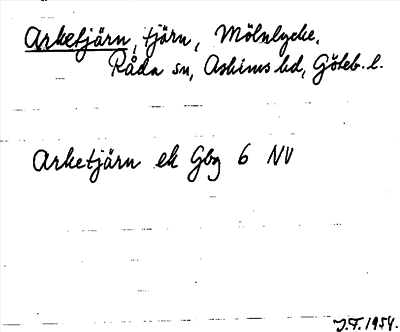 Arketjärn, tjärn, Mölnlycke.
Råda sn, Askims hd, Göteb. l.
Arketjärn ek Gbg 6 NV
J.F. 1954.